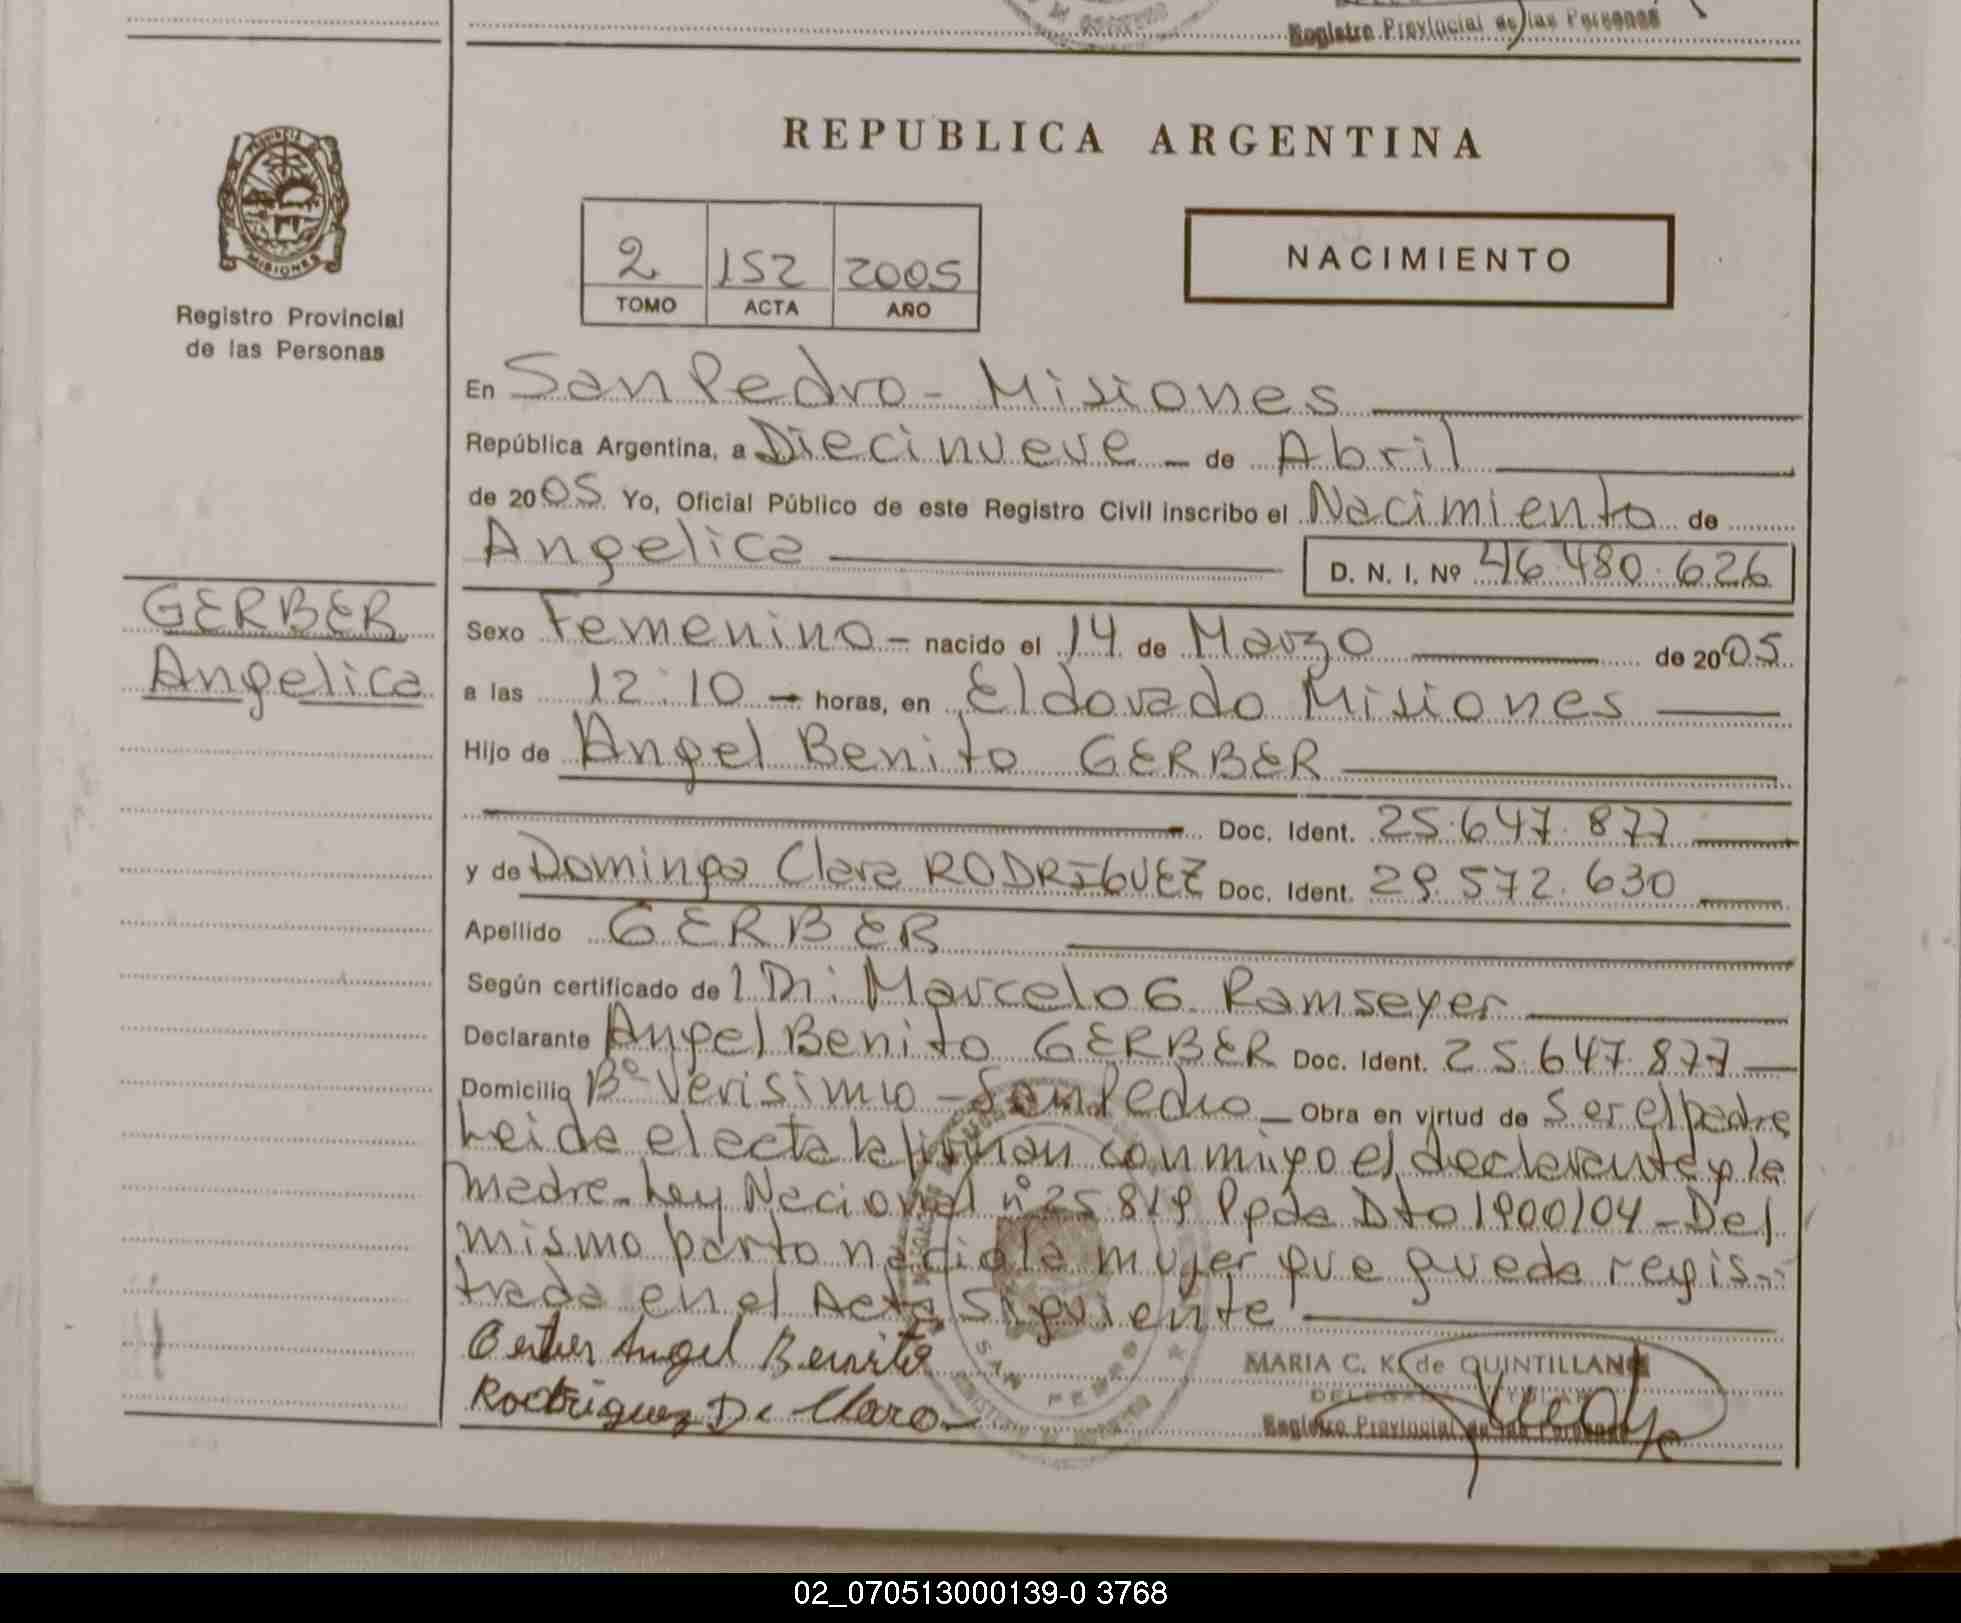 Registro Provincial de las Personas
REPUBLICA ARGENTINA
MISIONES
Registro Provincial
de las Personas
2 152 2005
TOMO ACTA AÑO
NACIMIENTO
En San Pedro - Misiones
República Argentina, a Diecinueve - de Abril
de 2005 Yo, Oficial Público de este Registro Civil inscribo el Nacimiento de
Angelica
D. N. I. Nº 46.480.626
GERBER
Angelica
Sexo Femenino - nacido el 14 de Marzo de 2005
a las 12:10 - horas, en Eldorado Misiones
Hijo de Angel Benito GERBER
Doc. Ident. 25.647.877
y de Dominga Clara RODRIGUEZ Doc. Ident. 29.572.630
Apellido GERBER
Según certificado de l Dr: Marcelo G. Ramseyer
Declarante Angel Benito GERBER Doc. Ident. 25.647.877
Domicilio Bº Verisimo - San Pedro - Obra en virtud de Ser el padre
Leida el acta la firman conmigo el declarante y la
madre - Ley Nacional nº 25819 Ppda Dto 1900/04 - Del
mismo parto nacio la mujer que queda regis-
trada en el Acta Siguiente
Gerber Angel Benito
Rodriguez D. Clara
SAN PEDRO
MARIA C. K. de QUINTILLAN
Registro Provincial de las Personas
02_070513000139-0 3768